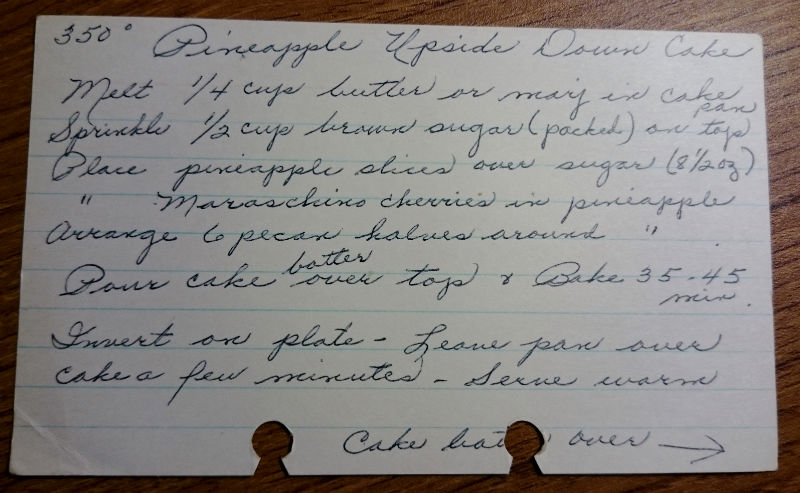 350° Pineapple Upside Down Cake
Melt 1/4 cup butter or marj in cake pan
Sprinkle 1/2 cup brown sugar (packed) on top
Place pineapple slices over sugar (8 1/2 oz)
" Maraschino cherries in pineapple
Arrange 6 pecan halves around "
Pour cake batter over top & Bake 35-45 min.
Invert on plate - Leave pan over
cake a few minutes - Serve warm
Cake over →